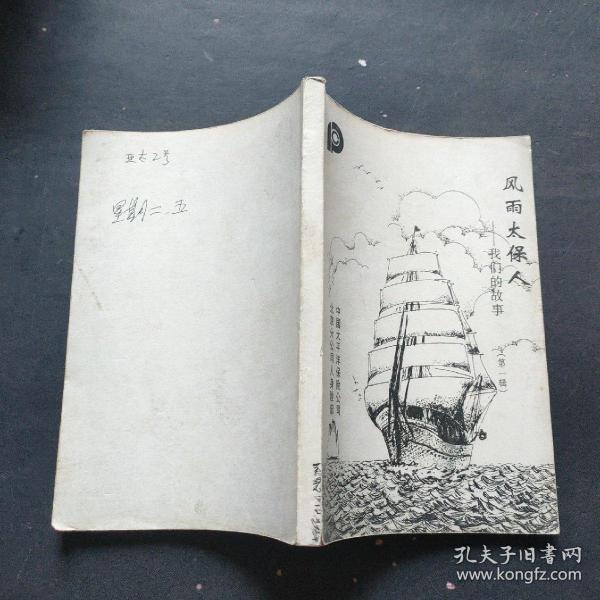 亚太2号
星期二.五
风雨太保人
——我们的故事
（第一辑）
中国太平洋保险公司
北京分公司人身险部
孔夫子旧书网
www.kongfz.com